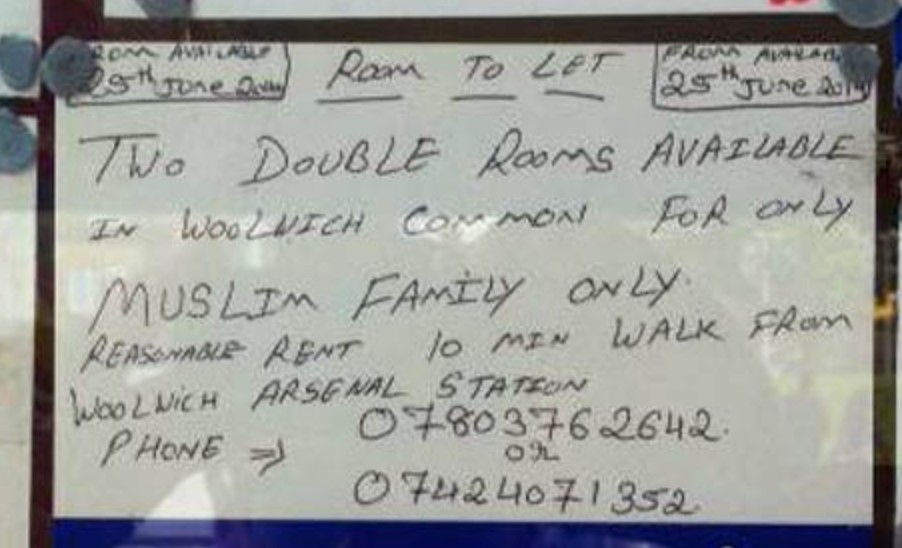 FROM AVAILABLE
25th June 2014
Room To LET
FROM AVAILABLE
25th June 2014
Two DOUBLE Rooms AVAILABLE
IN WOOLWICH COMMON FOR ONLY
MUSLIM FAMILY ONLY.
REASONABLE RENT 10 MIN WALK FROM
WOOLWICH ARSENAL STATION
PHONE ⇒ 07803762642.
OR
07424071352.